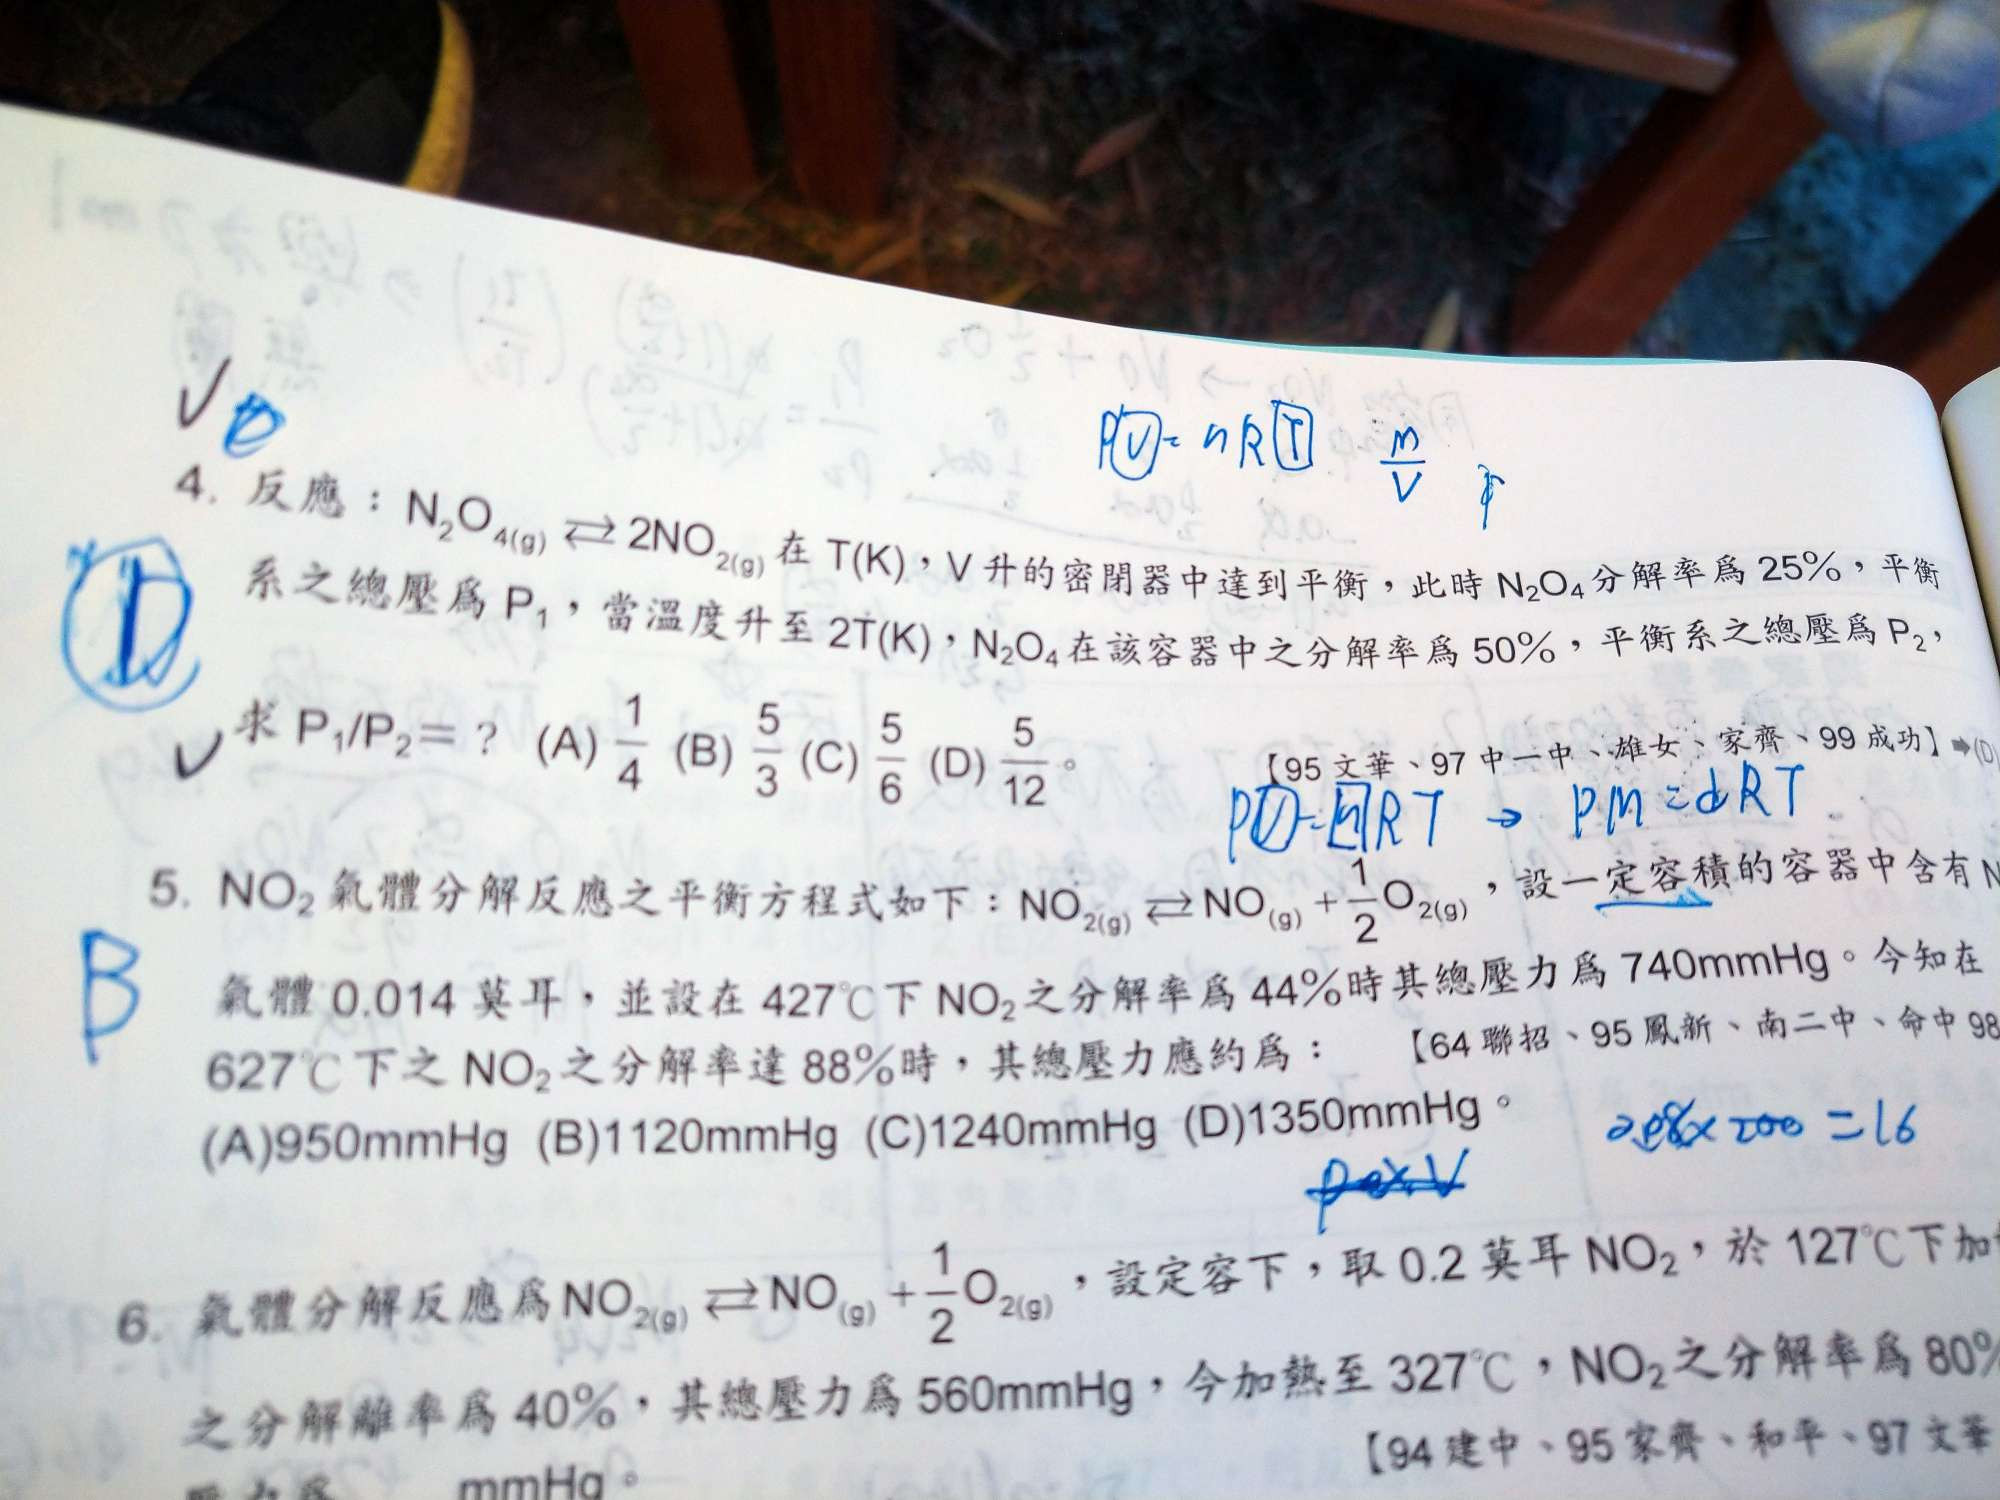 PV=nRT m/V
4. 反應：N₂O₄(g) ⇄ 2NO₂(g) 在 T(K)，V 升的密閉器中達到平衡，此時 N₂O₄ 分解率爲 25%，平衡
系之總壓爲 P₁，當溫度升至 2T(K)，N₂O₄ 在該容器中之分解率爲 50%，平衡系之總壓爲 P₂，
D
求 P₁/P₂＝？ (A) 1/4 (B) 5/3 (C) 5/6 (D) 5/12。
【95 文華、97 中一中、雄女、家齊、99 成功】➡(D)
PV=nRT → PM=dRT
5. NO₂ 氣體分解反應之平衡方程式如下：NO₂(g) ⇄ NO(g) + 1/2 O₂(g)，設一定容積的容器中含有 N
B
氣體 0.014 莫耳，並設在 427℃下 NO₂ 之分解率爲 44%時其總壓力爲 740mmHg。今知在
627℃下之 NO₂ 之分解率達 88%時，其總壓力應約爲： 【64 聯招、95 鳳新、南二中、命中 98
(A)950mmHg (B)1120mmHg (C)1240mmHg (D)1350mmHg。
× 200 = 16
6. 氣體分解反應爲 NO₂(g) ⇄ NO(g) + 1/2 O₂(g)，設定容下，取 0.2 莫耳 NO₂，於 127℃下加
之分解離率爲 40%，其總壓力爲 560mmHg，今加熱至 327℃，NO₂ 之分解率爲 80%
【94 建中、95 家齊、和平、97 文華
壓力爲 mmHg。